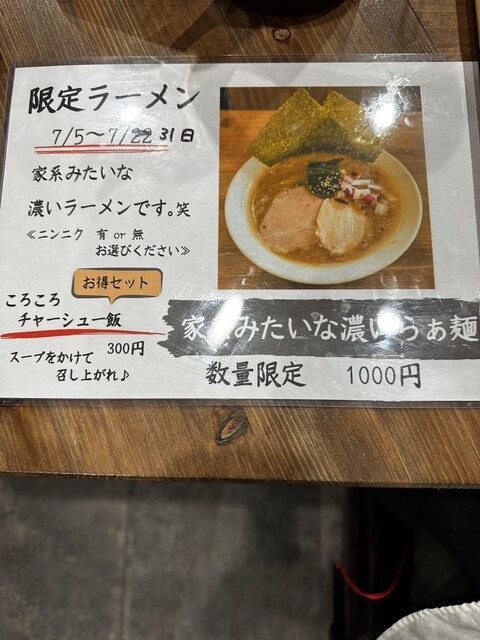 限定ラーメン
7/5～7/22 31日
家系みたいな
濃いラーメンです。笑
≪ニンニク 有 or 無
お選びください≫
お得セット
ころころ
チャーシュー飯
300円
スープをかけて
召し上がれ♪
家系みたいな濃いらぁ麺
数量限定 1000円